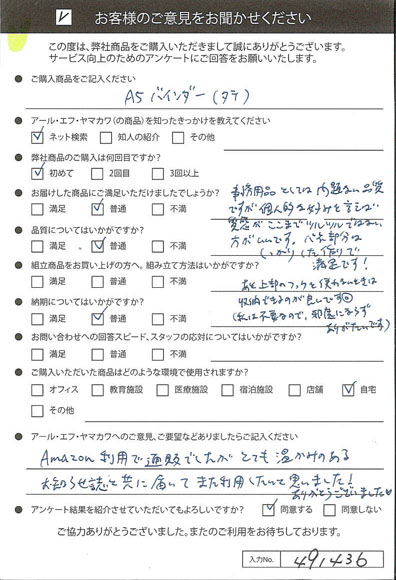 お客様のご意見をお聞かせください
この度は、弊社商品をご購入いただきまして誠にありがとうございます。
サービス向上のためのアンケートにご回答をお願いいたします。
● ご購入商品をご記入ください
A5 バインダー (タテ)
● アール・エフ・ヤマカワ(の商品)を知ったきっかけを教えてください
ネット検索 知人の紹介 その他
● 弊社商品のご購入は何回目ですか?
初めて 2回目 3回以上
● お届けした商品にご満足いただけましたでしょうか?
満足 普通 不満
事務用品としては問題ない品質
ですが個人的な好みを言えば
質感がここまでツルツルではない
方がいいです。バネ部分は
しっかりした作りで
満足です!
● 品質についてはいかがですか?
満足 普通 不満
● 組立商品をお買い上げの方へ。組み立て方法はいかがですか?
満足 普通 不満
あと上部のフックを使わないときは
収納できるのが良いです。
(私は不要なので、邪魔にならず
ありがたいです)
● 納期についてはいかがですか?
満足 普通 不満
● お問い合わせへの回答スピード、スタッフの応対についてはいかがですか?
満足 普通 不満
● ご購入いただいた商品はどのような環境で使用されますか?
オフィス 教育施設 医療施設 宿泊施設 店舗 自宅
その他
● アール・エフ・ヤマカワへのご意見、ご要望などありましたらご記入ください
Amazon利用で通販でしたがとても温かみのある
お知らせ誌と共に届いてまた利用したいと思いました!
ありがとうございました
● アンケート結果を紹介させていただいてもよろしいですか?
同意する 同意しない
ご協力ありがとうございました。またのご利用をお待ちしております。
入力No. 491436